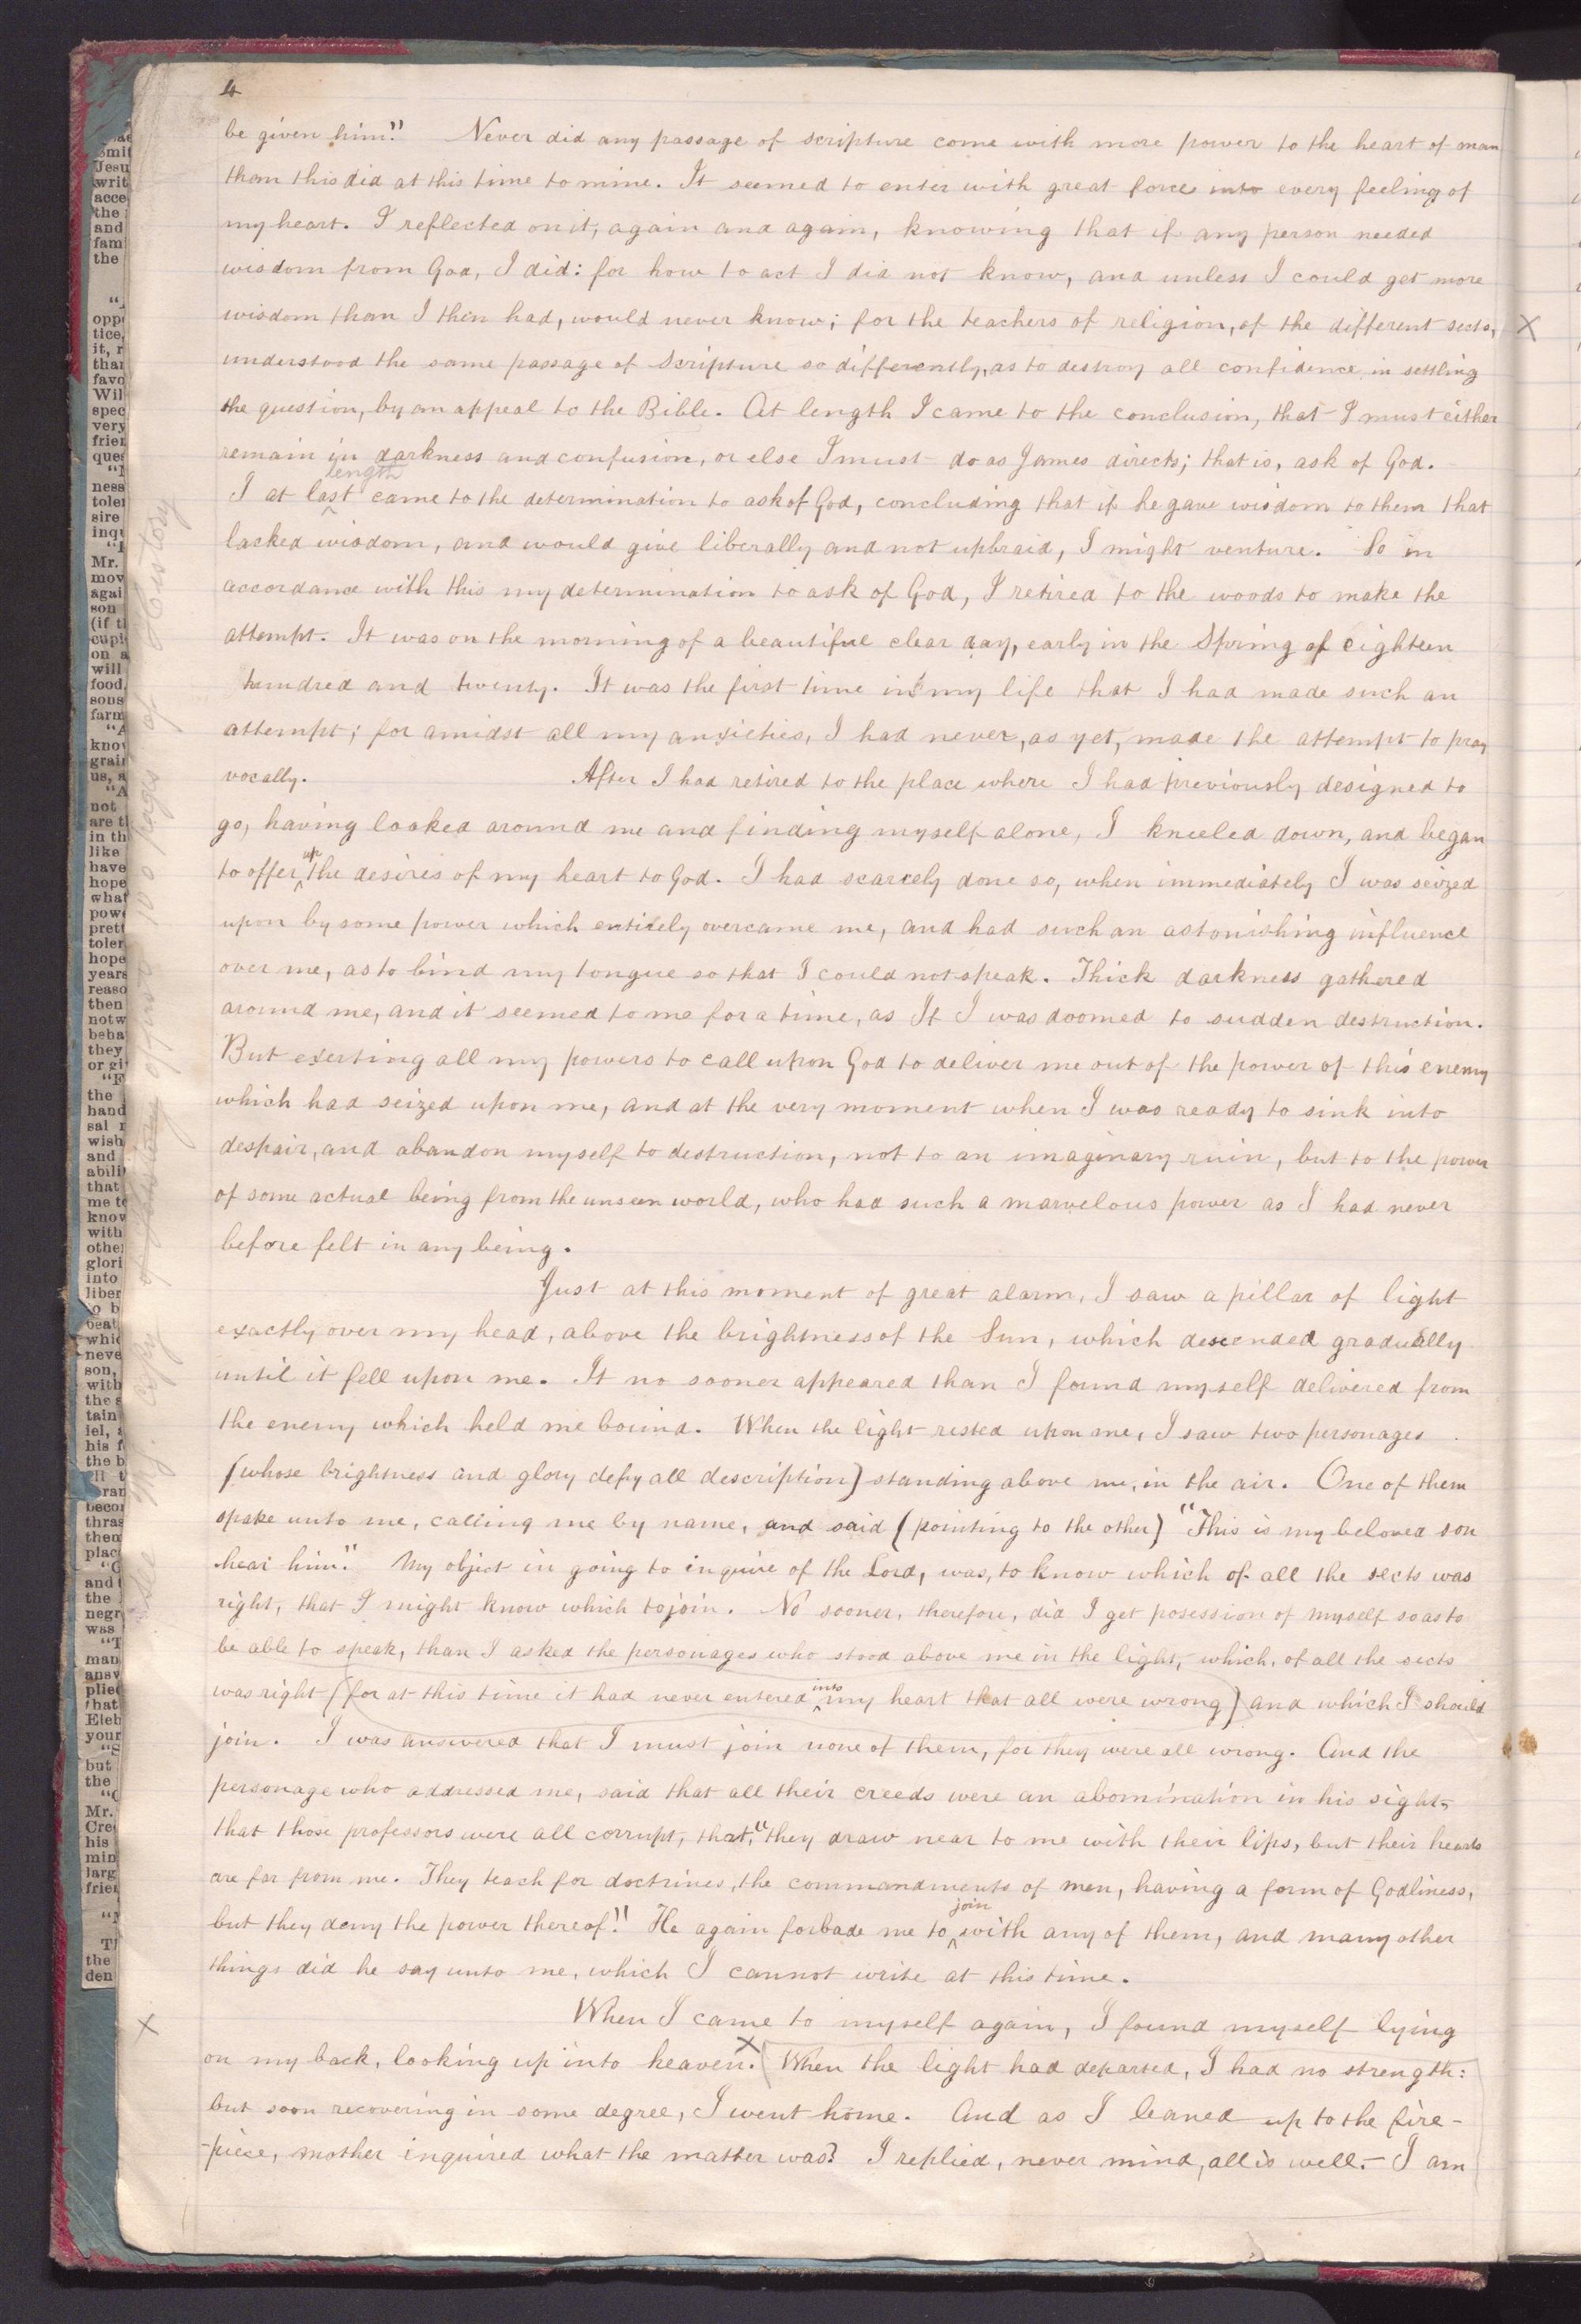 4
be given him." Never did any passage of scripture come with more power to the heart of man
than this did at this time to mine. It seemed to enter with great force into every feeling of
my heart. I reflected on it, again and again, knowing that if any person needed
wisdom from God, I did: for how to act I did not know, and unless I could get more
wisdom than I then had, would never know; for the teachers of religion, of the different sects,
understood the same passage of Scripture so differently, as to destroy all confidence in settling
the question, by an appeal to the Bible. At length I came to the conclusion, that I must either
remain in darkness and confusion, or else I must do as James directs; that is, ask of God.
length
I at last came to the determination to ask of God, concluding that if he gave wisdom to them that
lacked wisdom, and would give liberally and not upbraid, I might venture. So in
accordance with this my determination to ask of God, I retired to the woods to make the
attempt. It was on the morning of a beautiful clear day, early in the Spring of eighteen
hundred and twenty. It was the first time in my life that I had made such an
attempt; for amidst all my anxieties, I had never, as yet, made the attempt to pray
vocally. After I had retired to the place where I had previously designed to
go, having looked around me and finding myself alone, I kneeled down, and began
to offer up the desires of my heart to God. I had scarcely done so, when immediately I was seized
upon by some power which entirely overcame me, and had such an astonishing influence
over me, as to bind my tongue so that I could not speak. Thick darkness gathered
around me, and it seemed to me for a time, as If I was doomed to sudden destruction.
But exerting all my powers to call upon God to deliver me out of the power of this enemy
which had seized upon me, and at the very moment when I was ready to sink into
despair, and abandon myself to destruction, not to an imaginary ruin, but to the power
of some actual being from the unseen world, who had such a marvelous power as I had never
before felt in any being.
Just at this moment of great alarm, I saw a pillar of light
exactly over my head, above the brightness of the Sun, which descended gradually
until it fell upon me. It no sooner appeared than I found myself delivered from
the enemy which held me bound. When the light rested upon me, I saw two personages
(whose brightness and glory defy all description) standing above me, in the air. One of them
spake unto me, calling me by name, and said (pointing to the other) "This is my beloved son
hear him." My object in going to inquire of the Lord, was, to know which of all the sects was
right, that I might know which to join. No sooner, therefore, did I get posession of myself so as to
be able to speak, than I asked the personages who stood above me in the light, which, of all the sects
was right (for at this time it had never entered into my heart that all were wrong) and which I should
join. I was answered that I must join none of them, for they were all wrong. And the
personage who addressed me, said that all their creeds were an abomination in his sight,
that those professors were all corrupt, that, "they draw near to me with their lips, but their hearts
are far from me. They teach for doctrines, the commandments of men, having a form of Godliness,
but they deny the power thereof." He again forbade me to join with any of them, and many other
things did he say unto me, which I cannot write at this time.
When I came to myself again, I found myself lying
on my back, looking up into heaven. X When the light had departed, I had no strength:
but soon recovering in some degree, I went home. And as I leaned up to the fire-
-piece, mother inquired what the matter was? I replied, never mind, all is well.- I am
X
X